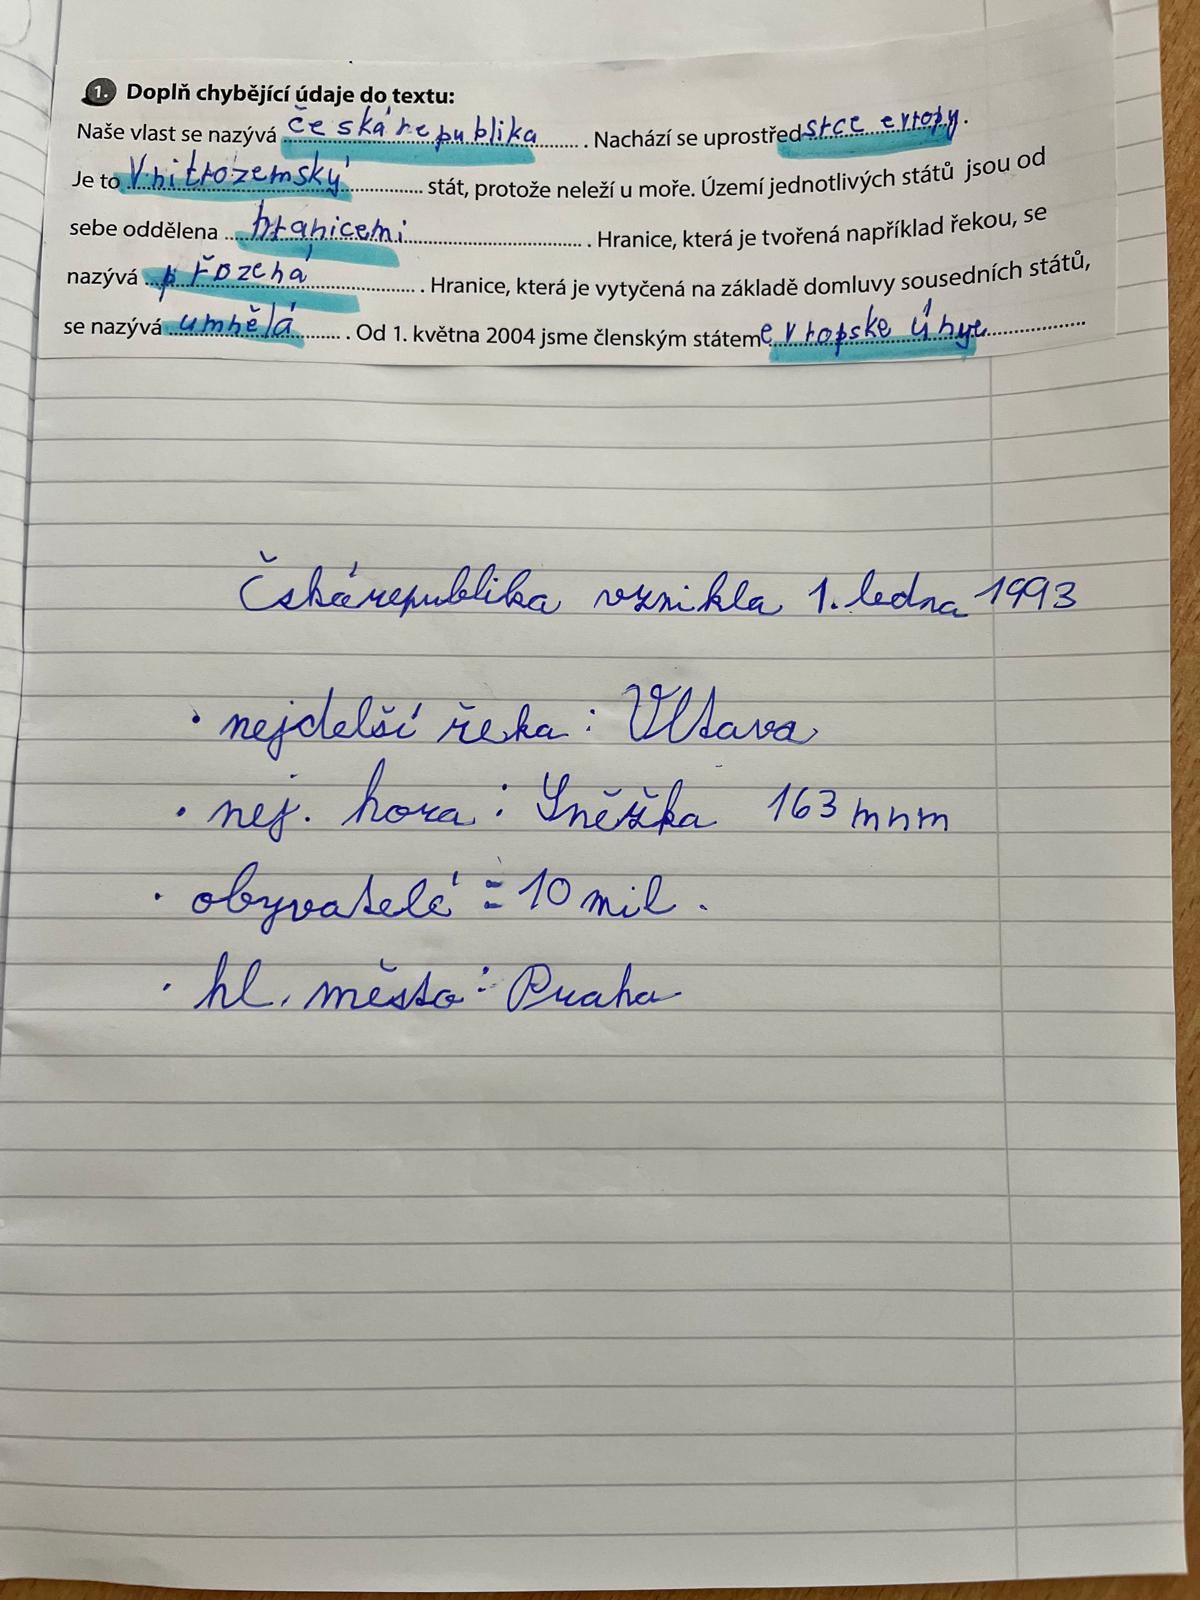 1. Doplň chybějící údaje do textu:
Naše vlast se nazývá česká republika. Nachází se uprostřed srce evropy.
Je to Vnitrozemský stát, protože neleží u moře. Území jednotlivých států jsou od
sebe oddělena hranicemi. Hranice, která je tvořená například řekou, se
nazývá přozená. Hranice, která je vytyčená na základě domluvy sousedních států,
se nazývá umnělá. Od 1. května 2004 jsme členským státem evropske únye
Čskárepublika vznikla 1. ledna 1993
• nejdelší řeka: Vltava
• nej. hora: Sněžka 163 mnm
• obyvatelé = 10 mil.
• hl. město: Praha